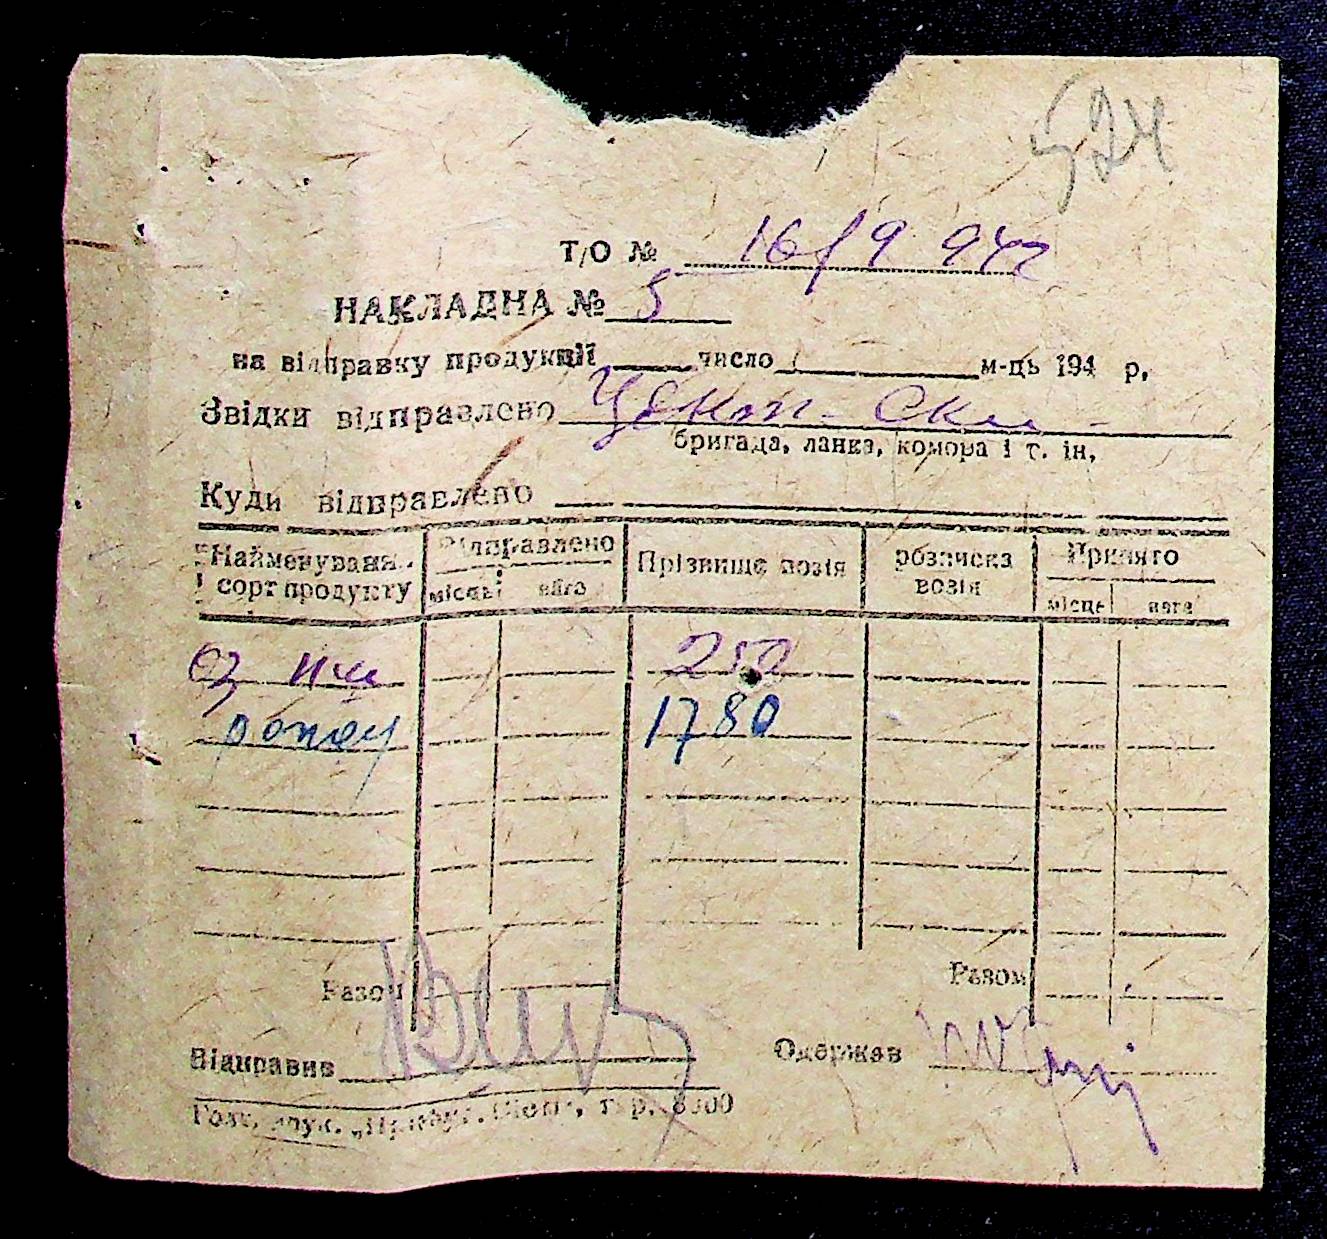 524
Т/О № 16/9 942
НАКЛАДНА № 5
на відправку продукції число м-ць 194 р.
Звідки відправлено Цент- Скл
бригада, ланка, комора і т. ін.
Куди відправлено
Найменування сорт продукту Відправлено місць вага Прізвище возія розписка возія Принято місць вага
оз пш 250
1780
Разом Разом
Відправив Одержав
Голт. друк. тир. 8000